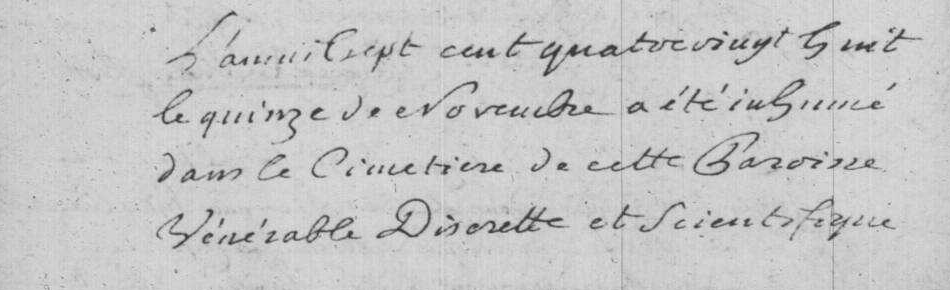 L'an mil sept cent quatrevingt huit
le quinze de Novembre a été inhumé
dans le Cimetiere de cette Paroisse
Vénérable Discrette et Scientifique